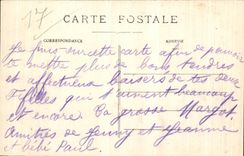 17
CARTE POSTALE
CORRESPONDANCE ADRESSE
Je suis sur cette carte afin de pouvoir
te mettre plus de bons tendres
et affectueux baisers de tes deux
filles qui t'aiment beaucoup
et ta grosse Margot.
Amitiés de Jenny et Jeanne
et bébé Paul